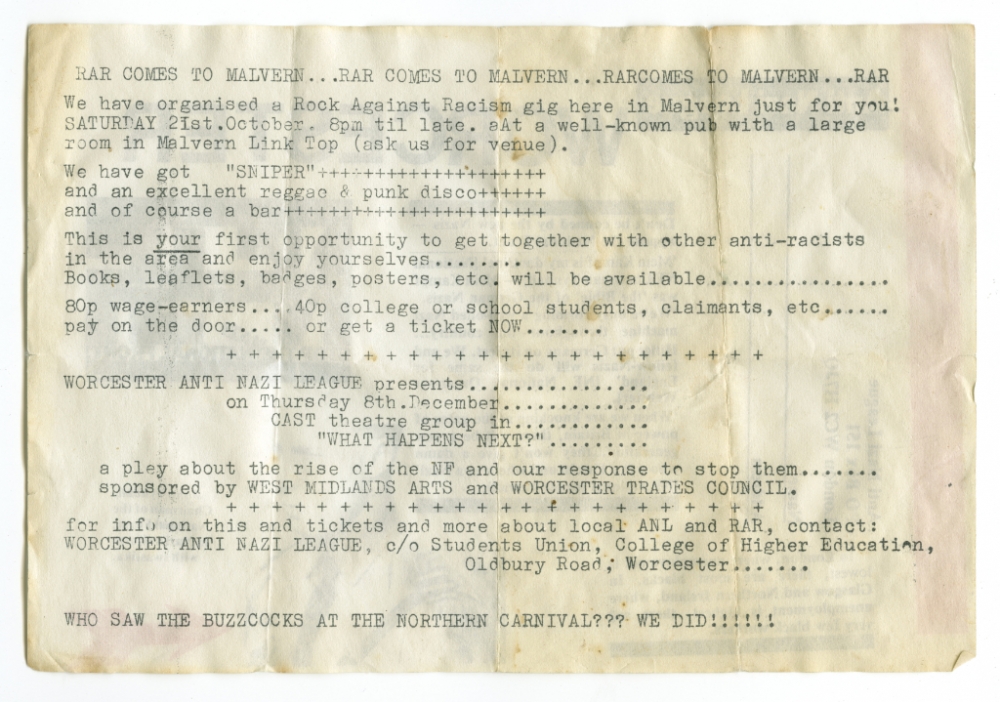 RAR COMES TO MALVERN...RAR COMES TO MALVERN...RARCOMES TO MALVERN...RAR
We have organised a Rock Against Racism gig here in Malvern just for you!
SATURDAY 21st.October. 8pm til late. aAt a well-known pub with a large
room in Malvern Link Top (ask us for venue).
We have got "SNIPER"++++++++++++++++++++++++
and an excellent reggae & punk disco++++++
and of course a bar+++++++++++++++++++++++
This is your first opportunity to get together with other anti-racists
in the area and enjoy yourselves........
Books, leaflets, badges, posters, etc. will be available................
80p wage-earners....40p college or school students, claimants, etc......
pay on the door..... or get a ticket NOW.......
+ + + + + + + + + + + + + + + + + + + + + + + +
WORCESTER ANTI NAZI LEAGUE presents................
on Thursday 8th.December.............
CAST theatre group in............
"WHAT HAPPENS NEXT?".........
a pley about the rise of the NF and our response to stop them.......
sponsored by WEST MIDLANDS ARTS and WORCESTER TRADES COUNCIL.
+ + + + + + + + + + + + + + + + + + + + + + + +
for info on this and tickets and more about local ANL and RAR, contact:
WORCESTER ANTI NAZI LEAGUE, c/o Students Union, College of Higher Education,
Oldbury Road, Worcester.......
WHO SAW THE BUZZCOCKS AT THE NORTHERN CARNIVAL??? WE DID!!!!!!